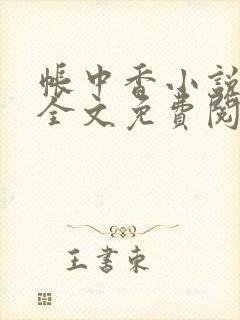 帳中香小說
全文免費閱
王書東